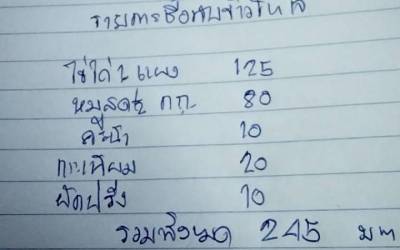 รายการซื้อกับข้าววันนี้
ไข่ไก่ 1 แผง 125
หมูสด ½ กก. 80
คะน้า 10
กระเทียม 20
ผักบุ้ง 10
รวมทั้งหมด 245 บาท